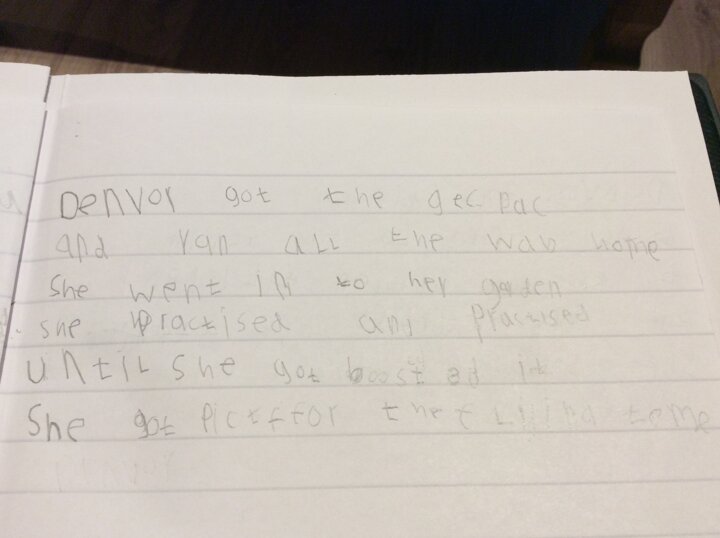 Denvor got the gec pac
and ran all the wab home
She went in to her garden
she practised and practised
until she got boosted it
She got pictffor the tome